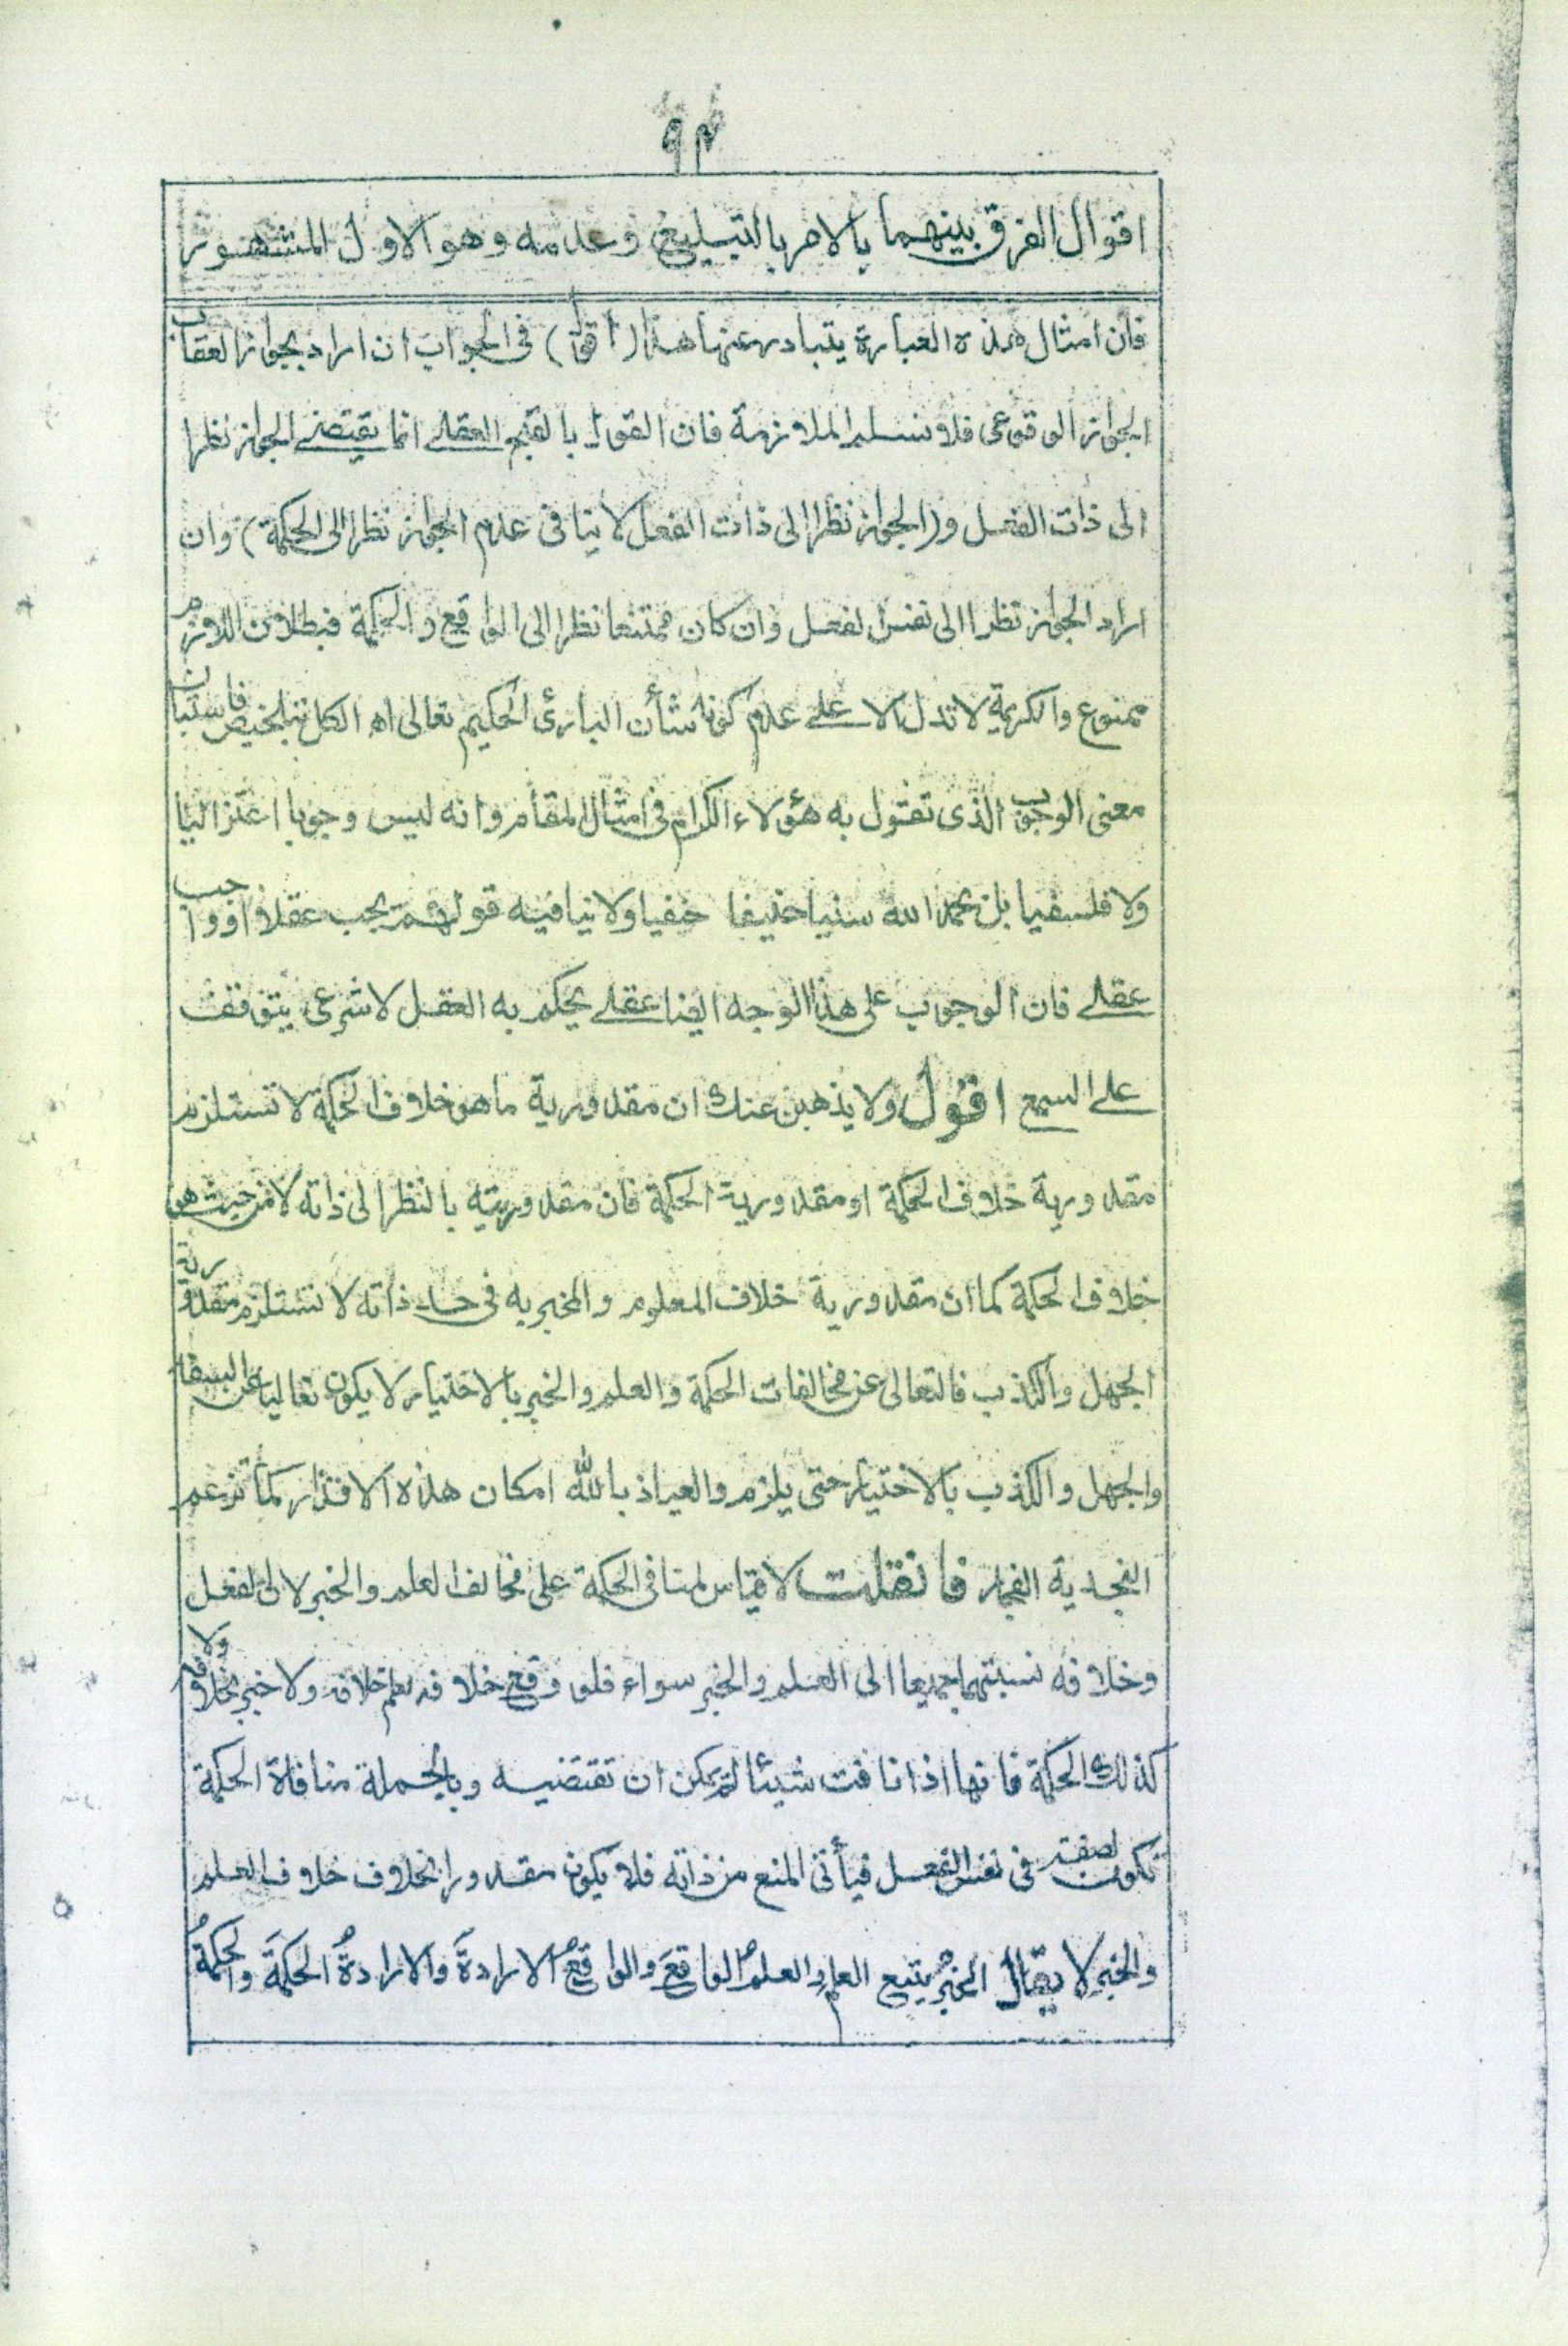 ٩٣
اقوال الفرق بينهما بالامر بالتبليغ وعدمه وهو الاول المشهور
فان امثال هذه العبارة يتبادر عنها هذا (اقول) فى الجواب ان اراد بجواز العقاب
الجواز الوقوعى فلا نسلم الملازمة فان القول بالقبح العقلے انما يقتضے الجواز نظرا
الى ذات الفعل و(الجواز نظرا الى ذات الفعل لا ينافى عدم الجواز نظرا الى الحكمة) وان
اراد الجواز نظرا الى نفس الفعل وان كان ممتنعا نظرا الى الواقع والحكمة فبطلان اللازم
ممنوع والكريمة لا تدل الا علے عدم كونه شأن البارئ الحكيم تعالى اه الكل بتلخيص فاستبان
معنى الوجوب الذى تقول به هؤلاء الكرام فى امثال المقام وانه ليس وجوبا اعتزاليا
ولا فلسفيا بل بحمد الله سنيا حنيفا حنفيا ولا ينافيه قولهم يجب عقلا او واجب
عقلے فان الوجوب على هذا الوجه ايضا عقلے يحكم به العقل لا شرعى يتوقف
علے السمع اقول ولا يذهبن عنك ان مقدورية ما هو خلاف الحكمة لا تستلزم
مقدورية خلاف الحكمة او مقدورية الحكمة فان مقدوريته بالنظر الى ذاته لا من حيث هو
خلاف الحكمة كما ان مقدورية خلاف المعلوم والمخبر به فى حد ذاته لا تستلزم مقدورية
الجهل والكذب فالتعالى عن مخالفات الحكمة والعلم والخبر بالاختيار لا يكون تعاليا عن السفه
والجهل والكذب بالاختيار حتى يلزم والعياذ بالله امكان هذه الاقذار كما تزعم
النجدية الفجار فان قلت لا قياس لمنافى الحكمة على مخالف العلم والخبر لان الفعل
وخلافه نسبتهما جميعا الى العلم والخبر سواء فلو وقع خلافه لعلم خلافه ولاخبر بخلافه ولا
كذلك الحكمة فانها اذا نافت شيئا لم يمكن ان تقتضيه وبالجملة منافاة الحكمة
تكون لصفة فى نفس الفعل فيأتى المنع من ذاته فلا يكون مقدورا بخلاف خلاف العلم
والخبر لا يقال الخبرُ يتبع العلمَ والعلمُ الواقعَ والواقعُ الارادةَ والارادةُ الحكمةَ والحكمةُ